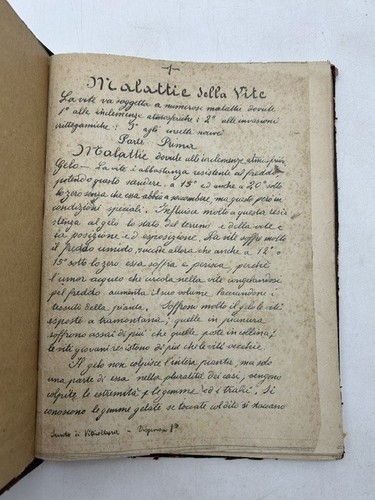 Malattie della Vite
La vite va soggetta a numerose malattie dovute
1° alle inclemenze atmosferiche; 2° alle invasioni
crittogamiche; 3° agli insetti nocivi
Parte Prima
Malattie dovute alle inclemenze atmosferiche
Gelo - La vite è abbastanza resistente al freddo,
potendo questo scendere a 15° ed anche a 20° sotto
lo zero senza che essa abbia a soccombere, ma questo però in
condizioni speciali. Influisce molto a questa resi
stenza al gelo lo stato del terreno e della vite e
la posizione ed esposizione. La vite soffre molto
il freddo umido, succede allora che anche a 12° o
13° sotto lo zero essa soffra e perisca, perchè
l'umor acqueo che circola nella vite congelandosi
pel freddo aumenta il suo volume lacerando i
tessuti della pianta. Soffrono molto il gelo le viti
esposte a tramontana; quelle in pianura
soffrono assai di più che quelle poste in collina;
le viti giovani resistono di più che le viti vecchie
Il gelo non colpisce l'intera pianta ma solo
una parte di essa nella pluralità dei casi, vengono
colpite le estremità, le gemme ed i tralci. Si
conoscono le gemme gelate se toccate col dito si staccano
Scuola di Viticoltura -